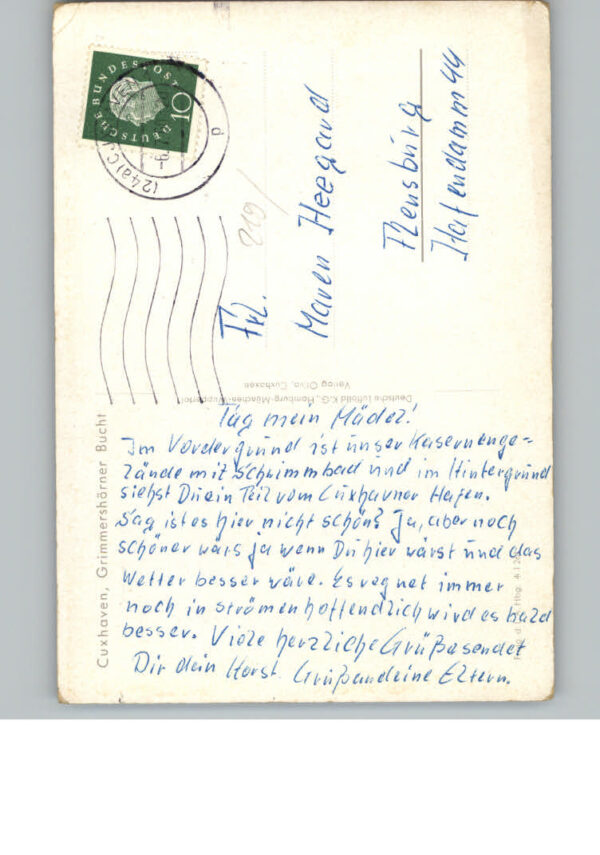 DEUTSCHE BUNDESPOST
10
(24a) CUXHAVEN
d
219/
Frl.
Maren Heegard
Flensburg
Hafendamm 44
Deutsche Luftbild K.G., Hamburg-München-Wuppertal
Verlag Otva, Cuxhaven
Cuxhaven, Grimmershörner Bucht
Tag mein Mädel!
Im Vordergrund ist unser Kasernenge-
lände mit Schwimmbad und im Hintergrund
siehst Du ein Teil vom Cuxhavner Hafen.
Sag ist es hier nicht schön? Ja, aber noch
schöner wärs ja wenn Du hier wärst und das
Wetter besser wäre. Es regnet immer
noch in strömen hoffendlich wird es bald
besser. Viele herzliche Grüße sendet
Dir dein Horst. Grüß an deine Eltern.